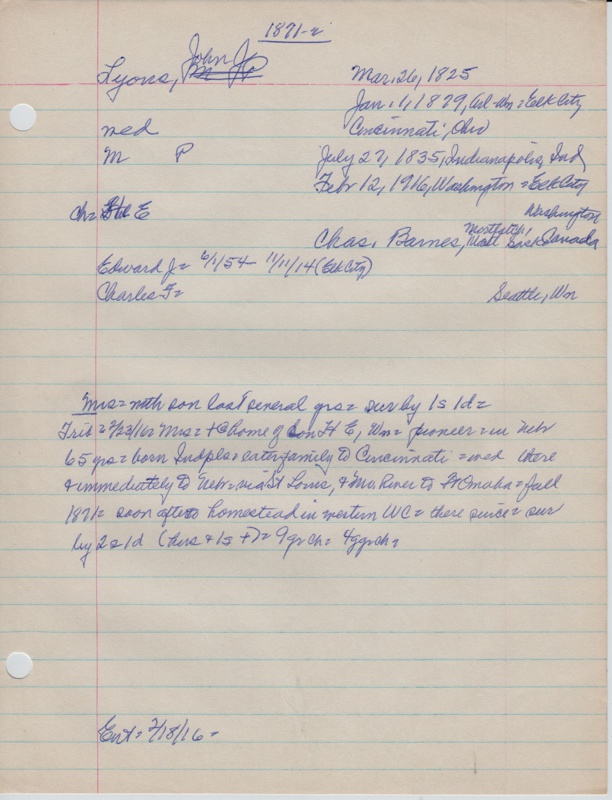 1871-2
John J
Lyons, Mar. 26, 1825
Jan. 1, 1879, Arl-Wn = Elk City
med Cincinnati, Ohio
M P July 27, 1835, Indianapolis, Ind
Febr 12, 1916, Washington = Elk City
ch = E Washington
Chas. Barnes, Canada
Edward J = 6/1/54 - 11/11/14 (Elk City)
Charles F = Seattle, Wn
Mrs = with son last several yrs = sur by 1s 1d =
Trib = 2/23/16 = Mrs = + @ home of son H E, Wn = pioneer = in Nebr
65 yrs = born Indpls = later family to Cincinnati = med there
+ immediately to Nebr = via St Louis, + Mo River to Omaha = fall
1871 = soon after to homestead in western WC = there since = sur
by 2s 1d (hers + 1s +) = 9 gr ch = 4 ggrch =
Ent = 2/18/16 =